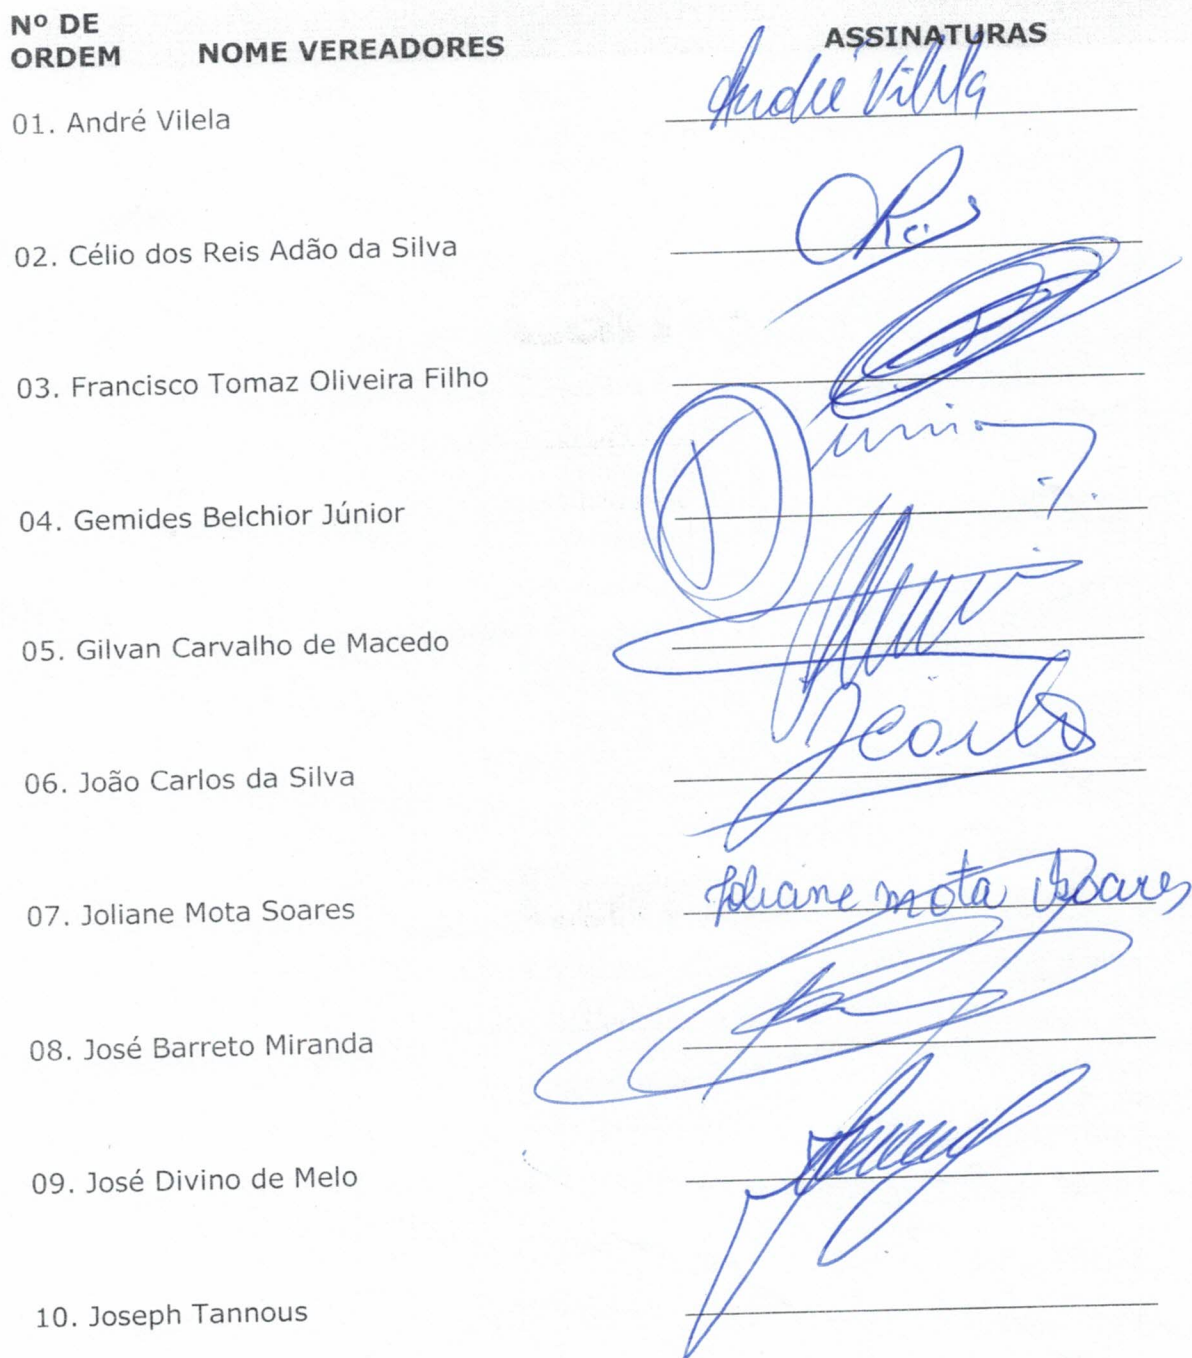 Nº DE
ORDEM NOME VEREADORES ASSINATURAS
01. André Vilela André Vilela
02. Célio dos Reis Adão da Silva
03. Francisco Tomaz Oliveira Filho
04. Gemides Belchior Júnior
05. Gilvan Carvalho de Macedo
06. João Carlos da Silva
07. Joliane Mota Soares Joliane Mota Soares
08. José Barreto Miranda
09. José Divino de Melo
10. Joseph Tannous